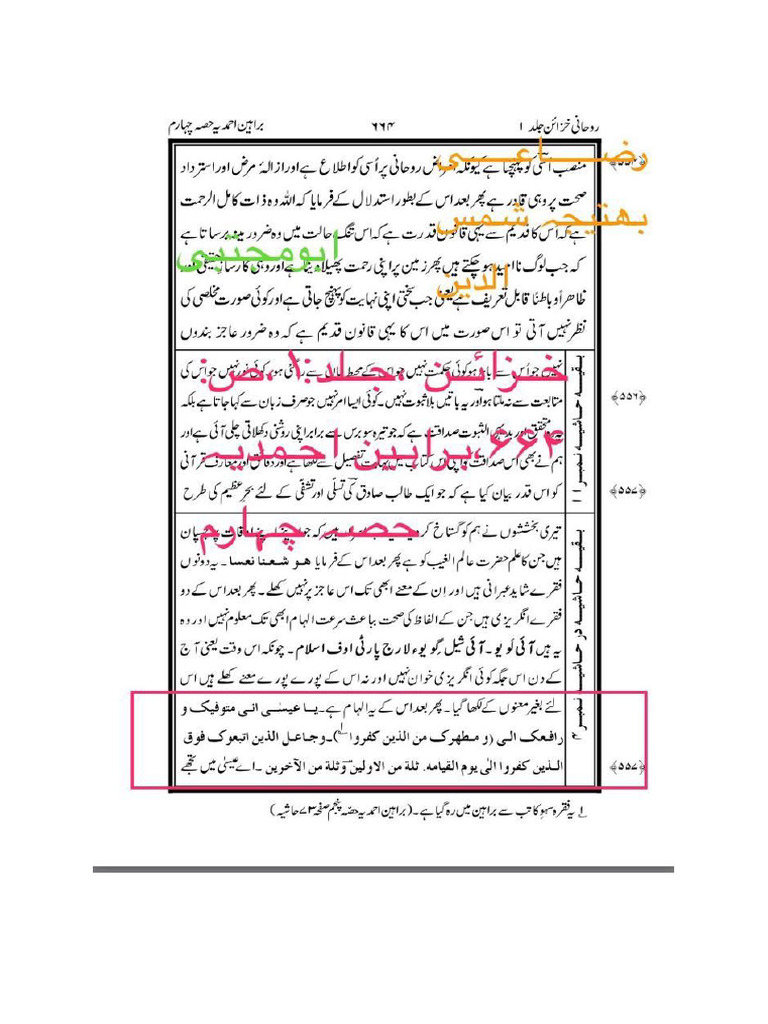 روحانی خزائن جلد ۱
۶۶۴
براہین احمدیہ حصہ چہارم
منصب اسی کو پہنچتا ہے کیونکہ امراض روحانی پر اُسی کو اطلاع ہے اور ازالۂ مرض اور استرداد
صحت پر وہی قادر ہے پھر بعد اس کے بطور استدلال کے فرمایا کہ اللہ وہ ذات کامل الرحمت
ہے کہ اُس کا قدیم سے یہی قانون قدرت ہے کہ اس تنگ حالت میں وہ ضرور مینہ برساتا ہے
کہ جب لوگ ناامید ہو چکتے ہیں پھر زمین پر اپنی رحمت پھیلا دیتا ہے اور وہی کارساز حقیقی اور
ظاہرًا و باطنًا قابل تعریف ہے یعنی جب سختی اپنی نہایت کو پہنچ جاتی ہے اور کوئی صورت مخلصی کی
نظر نہیں آتی تو اس صورت میں اس کا یہی قانون قدیم ہے کہ وہ ضرور عاجز بندوں
رضاعی
بھتیجہ شمس
الدین
ابومجتبی
بقیہ حاشیہ نمبر ۱۱
نہیں جو اُس سے باہر ہو کوئی حکمت نہیں جو اس کے محیط بیان سے رہ گئی ہو۔ کوئی نور نہیں جو اُس کی
متابعت سے نہ ملتا ہو اور یہ باتیں بلا ثبوت نہیں۔ کوئی ایسا امر نہیں جو صرف زبان سے کہا جاتا ہے بلکہ
﴿۵۵۶﴾
یہ وہ متحقق اور بدیہی الثبوت صداقت ہے کہ جو تیرہ سو برس سے برابر اپنی روشنی دکھلاتی چلی آئی ہے اور
ہم نے بھی اس صداقت کو اپنی اس کتاب میں نہایت تفصیل سے لکھا ہے اور دقائق اور معارف قرآنی
کو اس قدر بیان کیا ہے کہ جو ایک طالب صادق کی تسلی اور تشفی کے لئے بحر عظیم کی طرح
﴿۵۵۷﴾
خزائن ،جلد:۱ ،ص:
۶۶۴،براہین احمدیہ
حصہ چہارم
بقیہ حاشیہ در حاشیہ نمبر ۳
تیری بخششوں نے ہم کو گستاخ کر
ہیں جن کا علم حضرت عالم الغیب کو ہے پھر بعد اس کے فرمایا ھو شعنا نعسا۔ یہ دونوں
فقرے شاید عبرانی ہیں اور اِن کے معنے ابھی تک اس عاجز پر نہیں کھلے۔ پھر بعد اس کے دو
فقرے انگریزی ہیں جن کے الفاظ کی صحت بباعث سرعت الہام ابھی تک معلوم نہیں اور وہ
یہ ہیں آئی لَو یو۔ آئی شیل گِو یُوء لارج پارٹی اوف اسلام۔ چونکہ اس وقت یعنی آج
کے دن اس جگہ کوئی انگریزی خوان نہیں اور نہ اس کے پورے پورے معنے کھلے ہیں اس
لئے بغیر معنوں کے لکھا گیا۔ پھر بعد اس کے یہ الہام ہے۔ یا عیسٰی انی متوفیک و
رافعک الی (و مطھرک من الذین کفروا)۱۔ وجاعل الذین اتبعوک فوق
الذین کفروا الی یوم القیامہ۔ ثلۃ من الاولین وثلۃ من الآخرین۔ اے عیسیٰ میں تجھے
﴿۵۵۷﴾
۱ یہ فقرہ سہو کاتب سے براہین میں رہ گیا ہے۔ (براہین احمدیہ حصہ پنجم صفحہ ۷۳ حاشیہ)